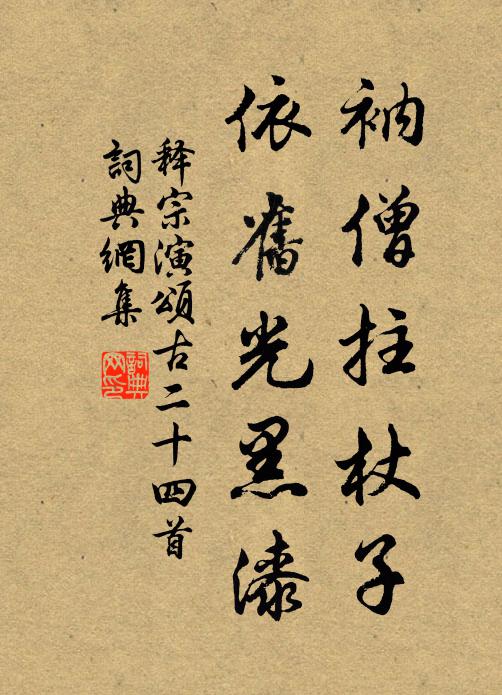 衲僧拄杖子
依舊光黑漆
释宗演頌古二十四首
詞典網集
詞典网印